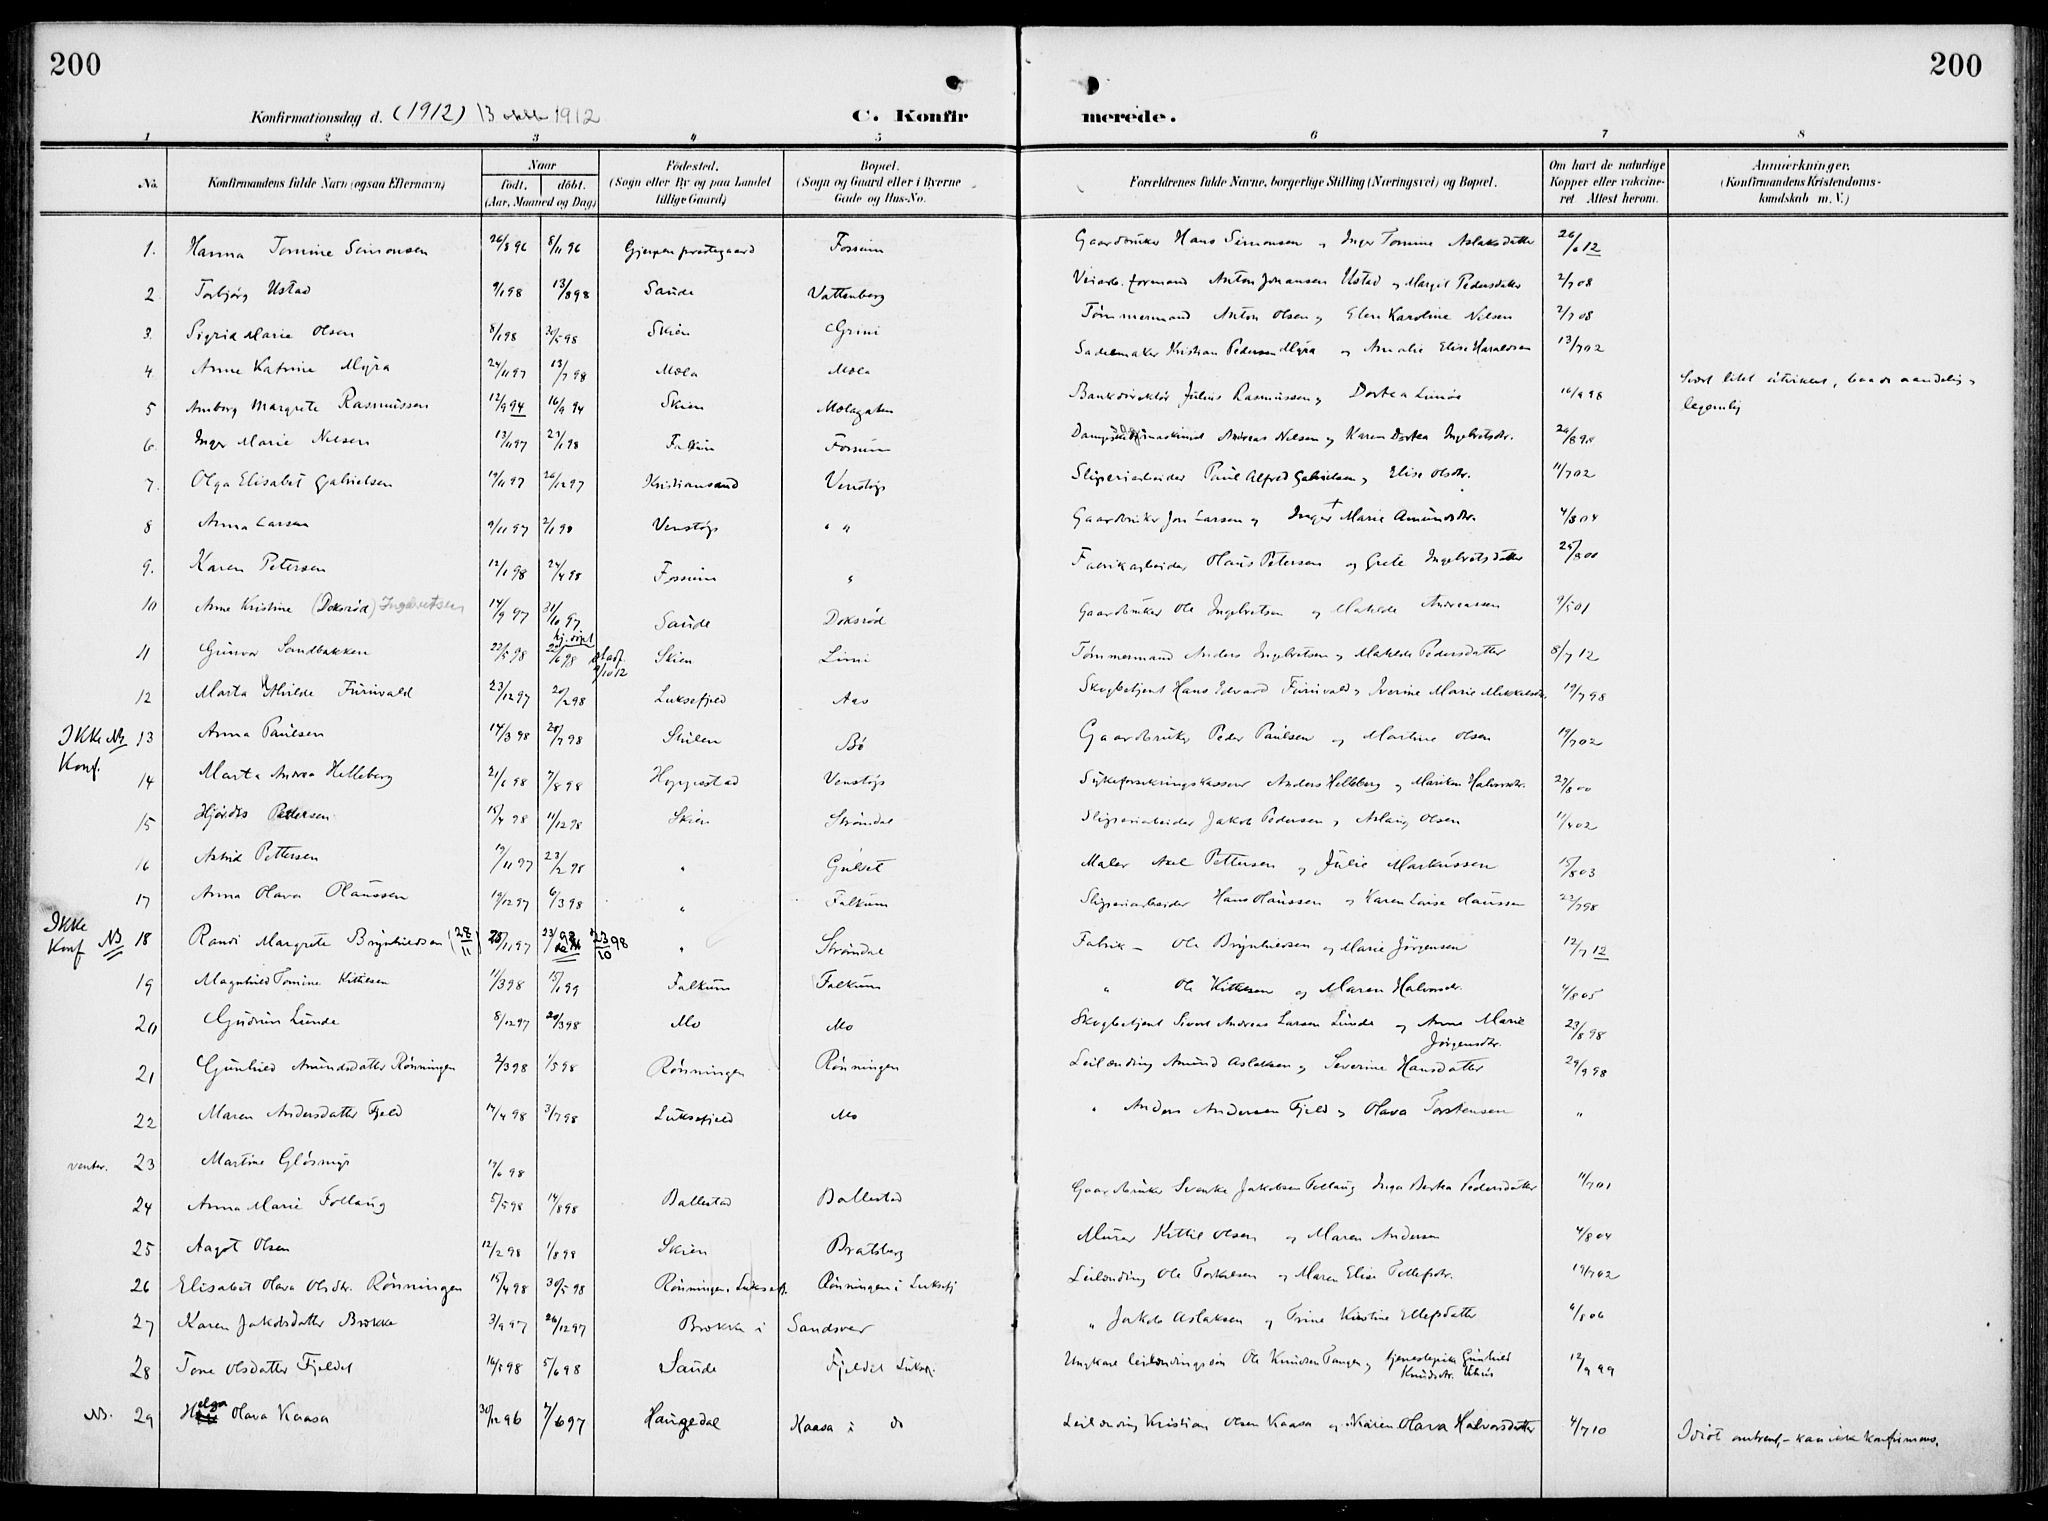 200
200
Konfirmationsdag d. (1912) 13 oktbr 1912
C. Konfirmerede.
1 2 3 4 5 6 7 8
No.
Konfirmandens fulde Navn (ogsaa Efternavn)
Naar
født. døbt.
(Aar, Maaned og Dag)
Fødested.
(Sogn eller By og paa Landet
tillige Gaard)
Bopæl.
(Sogn og Gaard eller i Byerne
Gade og Hus-No.
Forældrenes fulde Navne, borgerlige Stilling (Næringsvei) og Bopæl.
Om havt de naturlige
Kopper eller vakcine-
ret Attest herom.
Anmærkninger.
(Konfirmandens Kristendoms-
kundskab m. V.)
1. Hanna Tomine Simonsen 26/8 96 8/11 96 Gjerpen prestegaard Fossum Gaardbruker Hans Simonsen og Inger Tomine Aslaksdatter 26/6 12
2 Torbjørg Ustad 9/1 98 13/8 98 Saude Vattenberg Veiarb. formand Anton Johansen Ustad og Margit Pedersdatter 2/7 08
3. Sigrid Marie Olsen 8/1 98 30/5 98 Skien Grini Tømmermand Anton Olsen og Elen Karoline Nilsen 2/7 08
4 Anne Katrine Myra 24/11 97 13/7 98 Mæla Mæla Sadelmaker Kristian Pedersen Myra og Amalie Elise Haraldsen 13/7 02
5 Anborg Margrete Rasmussen 12/9 94 16/9 94 Skien Mælagaten Bankdirektør Julius Rasmussen og Dortea Linøe 16/9 98 Svært litet utviklet, baade aandelig og
legemlig
6. Inger Marie Nilsen 13/11 97 23/1 98 Falkum Fossum Andreas Nilsen og Karen Dortea Ingebretsdtr.
7. Olga Elisabet Gabrielsen 19/11 97 26/12 97 Kristiansand Venstøp Sliperiarbeider Paul Alfred Gabrielsen og Elise Olsdtr. 11/7 02
8 Anna Larsen 9/11 97 2/1 98 Venstøp " " Gaardbruker Jon Larsen og Inger † Marie Amundsdtr. 4/8 04
9. Karen Petersen 12/1 98 24/4 98 Fossum " Fabrikarbeider Hans Petersen og Grete Ingebretsdatter 29/8 00
10 Anne Kristine (Doksrød) Ingebretsen 14/9 97 31/10 97 Saude Doksrød Gaardbruker Ole Ingebretsen og Matilde Andreassen 9/5 01
11 Gunvor Sandbakken 22/5 98 hj. døpt 22/6 98 Skien Limi Tømmermand Anders Ingebretsen og Matilde Pedersdatter 8/7 12
12 Marta Mthilde Furuvald 23/12 97 20/2 98 Luksefjeld Aas Skogbetjent Hans Edvard Furuvald og Iverine Marie Mikkelsdtr. 19/7 98
IKKe NB
Konf.
13 Anna Paulsen 14/3 98 20/7 98 Skilen Bø Gaardbruker Peder Paulsen og Martine Olsen 19/7 02
14 Marta Andrea Helleberg 21/6 98 7/8 98 Hoppestad Venstøp Sykeforsikringskasserer Anders Helleberg og Mariken Halvorsdtr. 29/8 00
15 Hjørdis Pedersen 15/4 98 11/12 98 Skien Strømdal Sliperiarbeider Jakob Pedersen og Aslaug Olsen 11/4 02
16 Astrid Pettersen 19/11 97 23/2 98 " Gulset Maler Axel Pettersen og Julie Markussen 15/8 03
17 Anna Olava Olaussen 19/12 97 6/3 98 " Falkum Sliperiarbeider Hans Olaussen og Karen Lovise Olaussen 22/7 98
IKKe
Konf NB
18 Randi Margrete Brynhildsen (28/11) 28/11 97 23/10 98 " Strømdal Fabrik - Ole Brynhildsen og Marie Jørgensen 12/7 12
19 Magnhild Tomine Kittilsen 11/3 98 15/1 99 Falkum Falkum " Ole Kittilsen og Maren Halvorsdtr. 4/8 05
20 Gudrun Lunde 8/12 97 20/3 98 Mo Mo Skogbetjent Sivert Andreas Larsen Lunde og Anne Marie
Jørgensdtr. 23/8 98
21 Gunhild Amundsdatter Rønningen 2/3 98 1/5 98 Rønningen Rønningen Leilænding Amund Aslaksen og Severine Hansdatter 29/9 98
22 Maren Andersdatter Fjeld 17/4 98 3/7 98 Luksefjeld Mo " Anders Andersen Fjeld og Olava Torstensen "
venter. 23 Martine Gløsmyr 13/6 98
24 Anna Marie Follaug 5/5 98 14/8 98 Ballestad Ballestad Gaardbruker Svenke Jakobsen Follaug Inga Bertea Pedersdatter 11/7 01
25 Aagot Olsen 12/2 98 1/8 98 Skien Bratsberg Murer Kittil Olsen og Maren Andersen 4/8 04
26 Elisabet Olava Olsdtr. Rønningen 15/4 98 30/5 98 Rønningen i Luksefj. Rønningen i Luksefj Leilænding Ole Torkelsen og Maren Elise Tollefsdtr. 19/7 02
27 Karen Jakobsdatter Brække 3/9 97 26/12 97 Brække i Sandsver " Jakob Aslaksen og Trine Kirstine Ellefsdatter 6/8 06
28 Tone Olsdatter Fjeldet 16/5 98 5/6 98 Saude Fjeldet Luksefj. Ungkare leilændingssøn Ole Knudsen Tangen og tjenestepike Gunhild
Knudsdtr. Uhus 12/9 99
NB. 29 Helga Olava Kaasa 30/12 96 7/6 97 Haugedal Kaasa i do Leilænding Kristian Olsen Kaasa og Maren Olava Halvorsdatter 4/7 10 Idiot omtrent, - kan ikke konfirmeres.